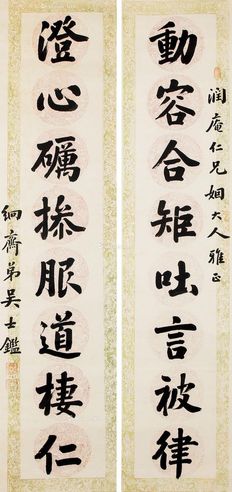 潤庵仁兄姻大人雅正
動容合矩吐言被律
澄心礪操服道棲仁
絅齋弟吳士鑑